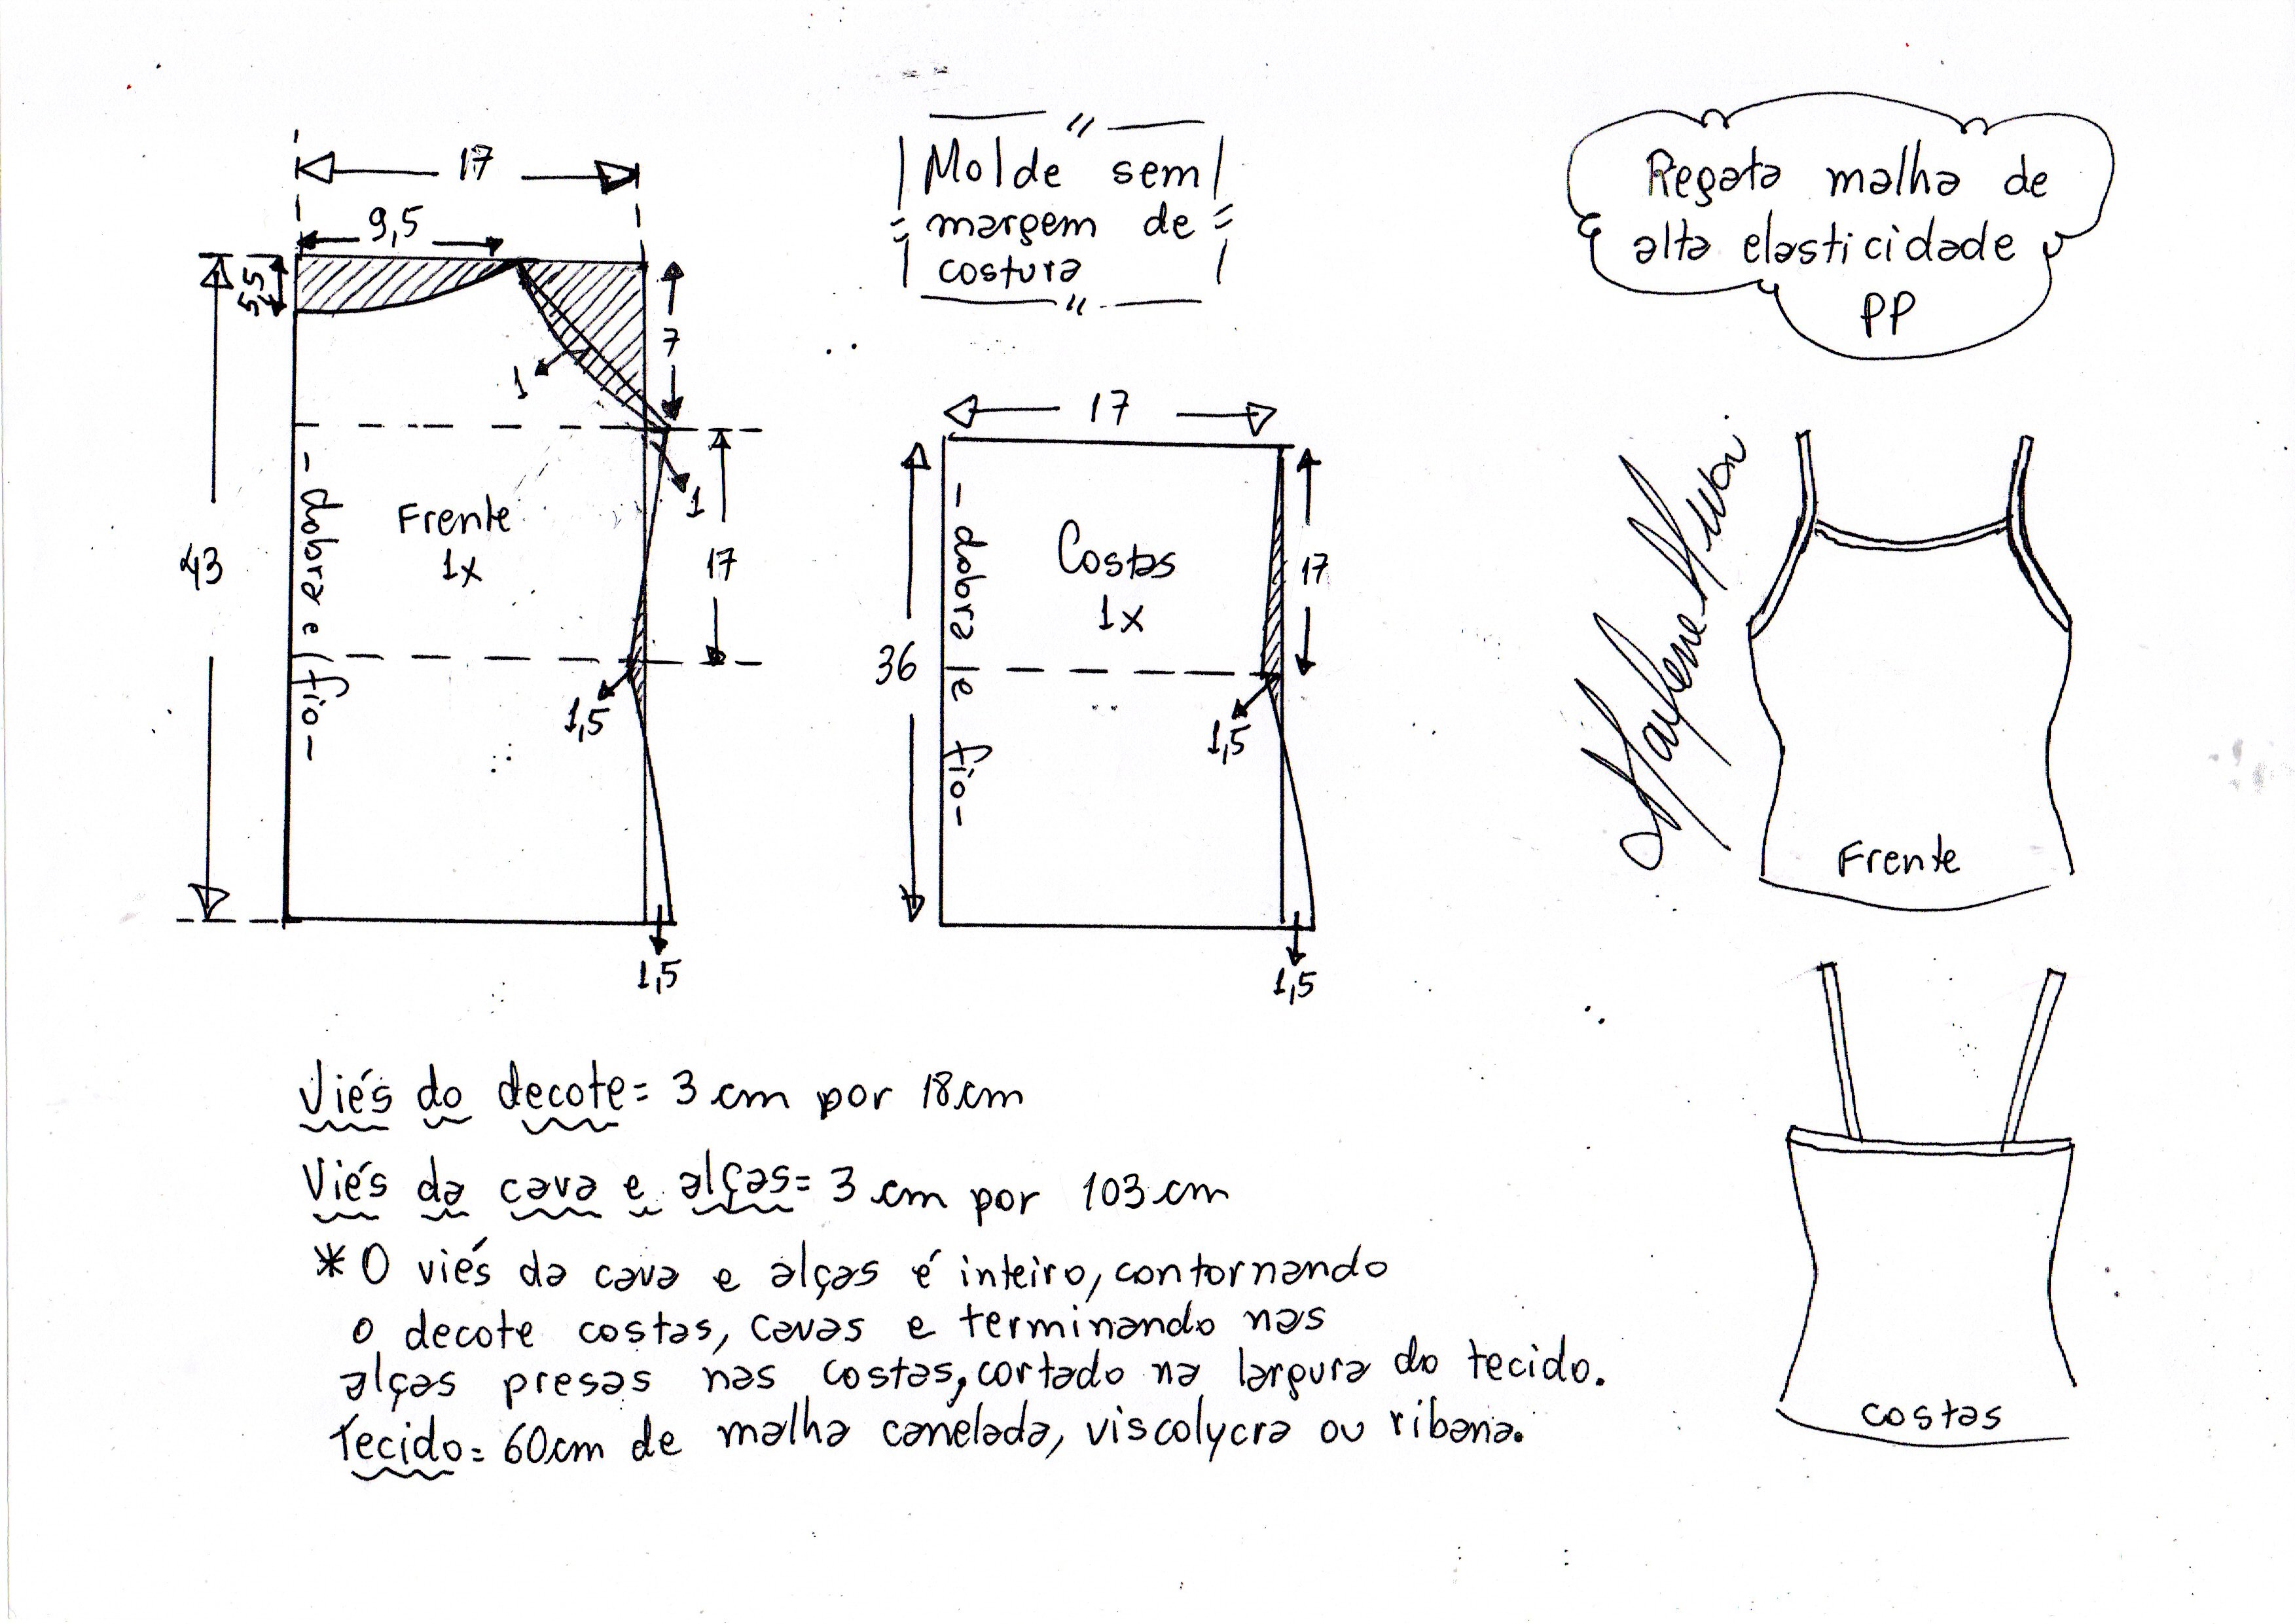 17
9,5
5,5
7
1
1
43
17
1,5
1,5
Frente
1x
- dobra e fio -
Molde sem
margem de
costura
17
36
17
1,5
1,5
Costas
1x
- dobra e fio -
Regata malha de
alta elasticidade
PP
Frente
Costas
Viés do decote = 3 cm por 18 cm
Viés da cava e alças = 3 cm por 103 cm
* O viés da cava e alças é inteiro, contornando
o decote costas, cavas e terminando nas
alças presas nas costas, cortado na largura do tecido.
Tecido = 60cm de malha canelada, viscolycra ou ribana.